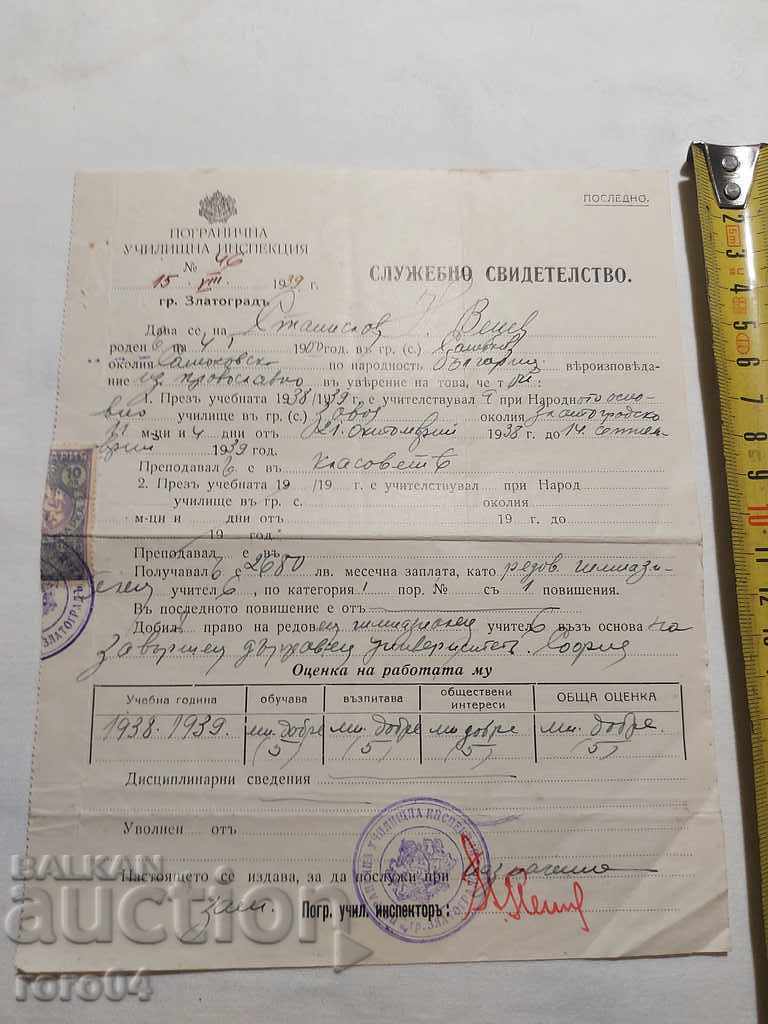 ПОСЛЕДНО.
ПОГРАНИЧНА
УЧИЛИЩНА ИНСПЕКЦИЯ
№ 46
15. VIII. 1939 г.
гр. Златоградъ
СЛУЖЕБНО СВИДЕТЕЛСТВО.
Дава се на Станислав Н. Вешев
роден на 4 I 1900 год. въ гр. (с.)
околия Самоковска по народность българин вѣроизповѣда-
ние из. православно въ увѣрение на това, че той:
1. Презъ учебната 1938/1939 г. е учителствувал при Народното осно-
вно училище въ гр. (с.) околия Златоградска
м-ци и 4 дни отъ 21. октомврий 1938 г. до 14 септем-
врий 1939 год.
Преподавал е въ класовете
2. Презъ учебната 19 /19 г. е учителствувал при Народ
училище въ гр. с. околия
м-ци и дни отъ 19 г. до
19 год.
Преподавал е въ
Получавал е 2680 лв. месечна заплата, като редов. гимнази-
ален учител, по категория I пор. № съ 1 повишения.
Въ последното повишение е отъ
Добил право на редовен гимназиален учител възъ основа на
завършен държавен университет София
Оценка на работата му
Учебна година обучава възпитава обществени интереси ОБЩА ОЦЕНКА
1938-1939. мн. добре мн. добре мн. добре мн. добре.
(5) (5) (5) (5)
Дисциплинарни сведения
Уволнен отъ
Настоящето се издава, за да послужи при назначение
зам. Погр. учил. инспекторъ:
УЧИЛИЩНА ИНСПЕКЦИЯ
гр. ЗЛАТОГРАДЪ
ЗЛАТОГРАДЪ
10
BALKAN
auction
roro04
2 3 4 5 6 7 8 9 10 11 12 13